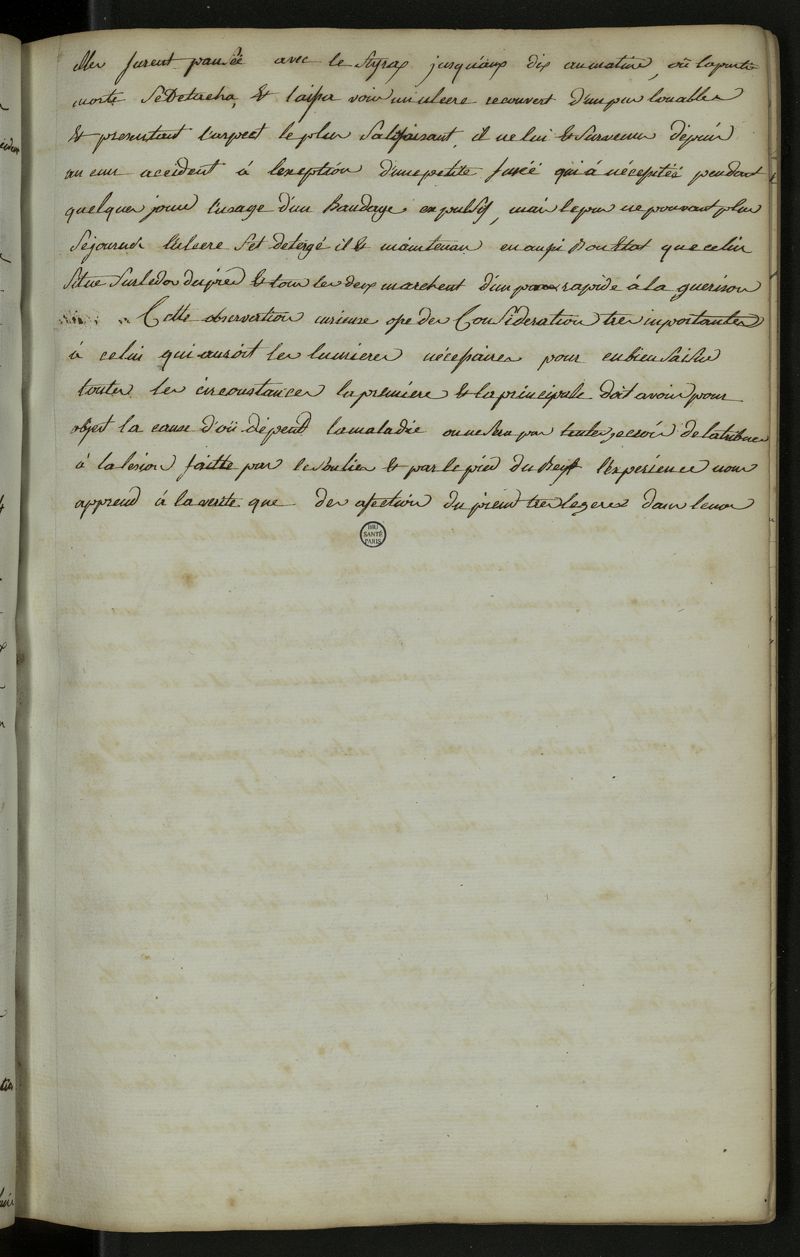 elles furent pansée avec le styrax jusqu'aux dix au matin, où la partie
morte se Detacha, Et laissa voir un ulcere recouvert d'un pus louables
Et presentant l'aspect le plus satisfaisant, il ne lui Est survenu depuis
aucun accident à l'exeption d'une petite fusée qui à nécessitée pendant
quelques jours l'usage d'un Bandage expulsif, mais le pus ne pouvant plus
séjourner l'ulcere s'est detergé il Est maintenan en aussi Bon Etat que celui
situe sur le dos du pied Et tous les deux marchent d'un pas rapide à la guerison
Cette observation curieuse ofre des Considerations tres importantes
à celui qui auroit les lumieres nécessaires pour en bien saisir
toutes les circonstances la premiere Et la principale doit avoir pour
objet la cause d'où dépend la maladie on ne sera pas tenté je crois de l'atribuer
à la lesion faitte par le soulier Et par le pied du l'experience nous
apprend à la verité que des afections du tres legeres dans leur
BIU
SANTÉ
PARIS